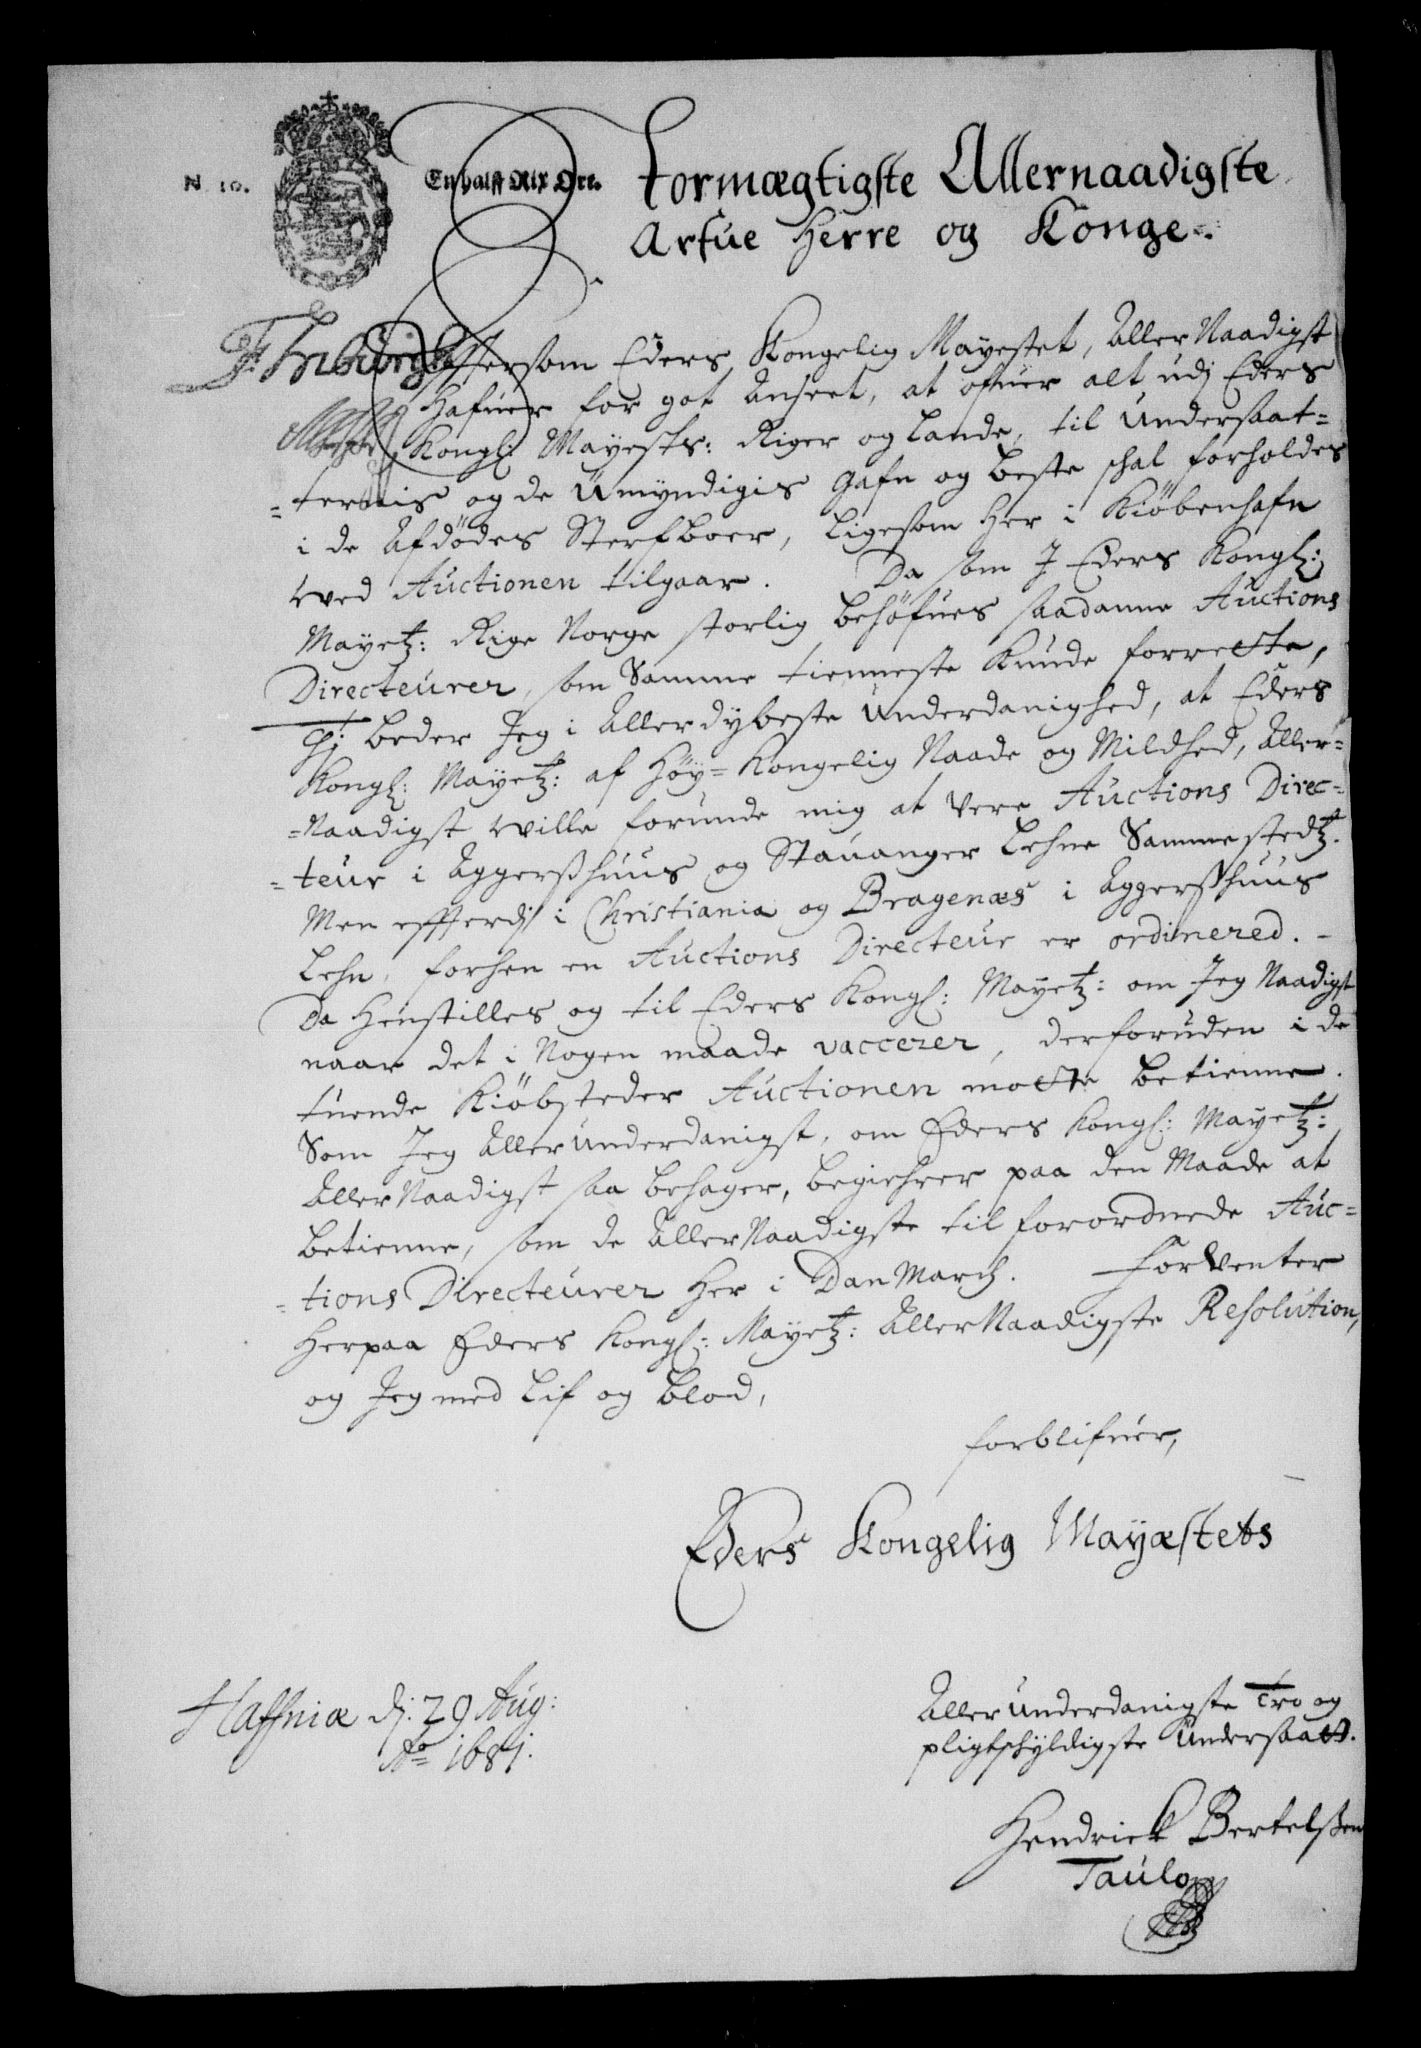 N 10.
En halff Rix Ort.
Formægtigste Allernaadigste
Arfue Herre og Konge.
Effersom Eders Kongelig Mayestet, AllerNaadigst
Hafuer for got Anseet, at ofuer alt udj Eders
Kongl: Mayests: Riger og Lande, til Undersaat=
=ternis og de Umyndigis Gafn og beste schal forholdes
i de Afdödes Sterfboer, Ligesom Her i Kiöbenhafn
wed Auctionen tilgaar. Da som J Eders Kongl:
Mayetz: Rige Norge storlig behöfues saadanne Auctions
Directeurer, som Samme tienneste Kunde forrette,
Thj beder Jeg i Allerdybeste Underdanighed, at Eders
Kongl: Mayetz: af Höy=Kongelig Naade og Mildhed, Aller=
=Naadigst wille forunde mig at Vere Auctions Direc=
=teur i Aggerßhuus og Stauanger Lehne Sammestedtz.
Men effterdj i Christiania og Bragenæs i Aggerßhuus
Lehn, forhen en Auctions Directeur er ordinered. -
Da Henstilles og til Eders Kongl: Mayetz: om Jeg Naadigst
naar det i Nogen maade vaccerer, derforuden i de
tuende Kiöbsteder Auctionen motte betienne.
Som Jeg Allerunderdanigst, om Eders Kongl: Mayetz:
AllerNaadigst saa behager, begiehrer paa den Maade at
betienne, som de AllerNaadigste tilforordnede Auc=
=tions Directeurer Her i DanMarch. Forventer
Herpaa Eders Kongl: Mayetz: AllerNaadigste Resolution,
og Jeg med Lif og blod,
forblifuer,
Eders Kongelig Mayæstets
Haffniæ dj: 29 Aug:
Ao 1681.
Allerunderdanigste Tro og
pligtschyldigste Undersaatt.
Hendrick Bertelßen
Taulo